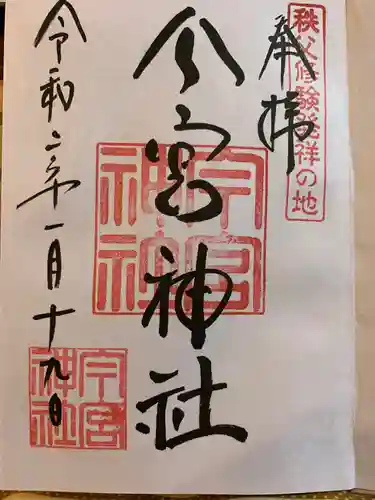 秩父修験発祥の地
奉拝
今宮神社
今宮神社
令和二年一月十九日
今宮神社